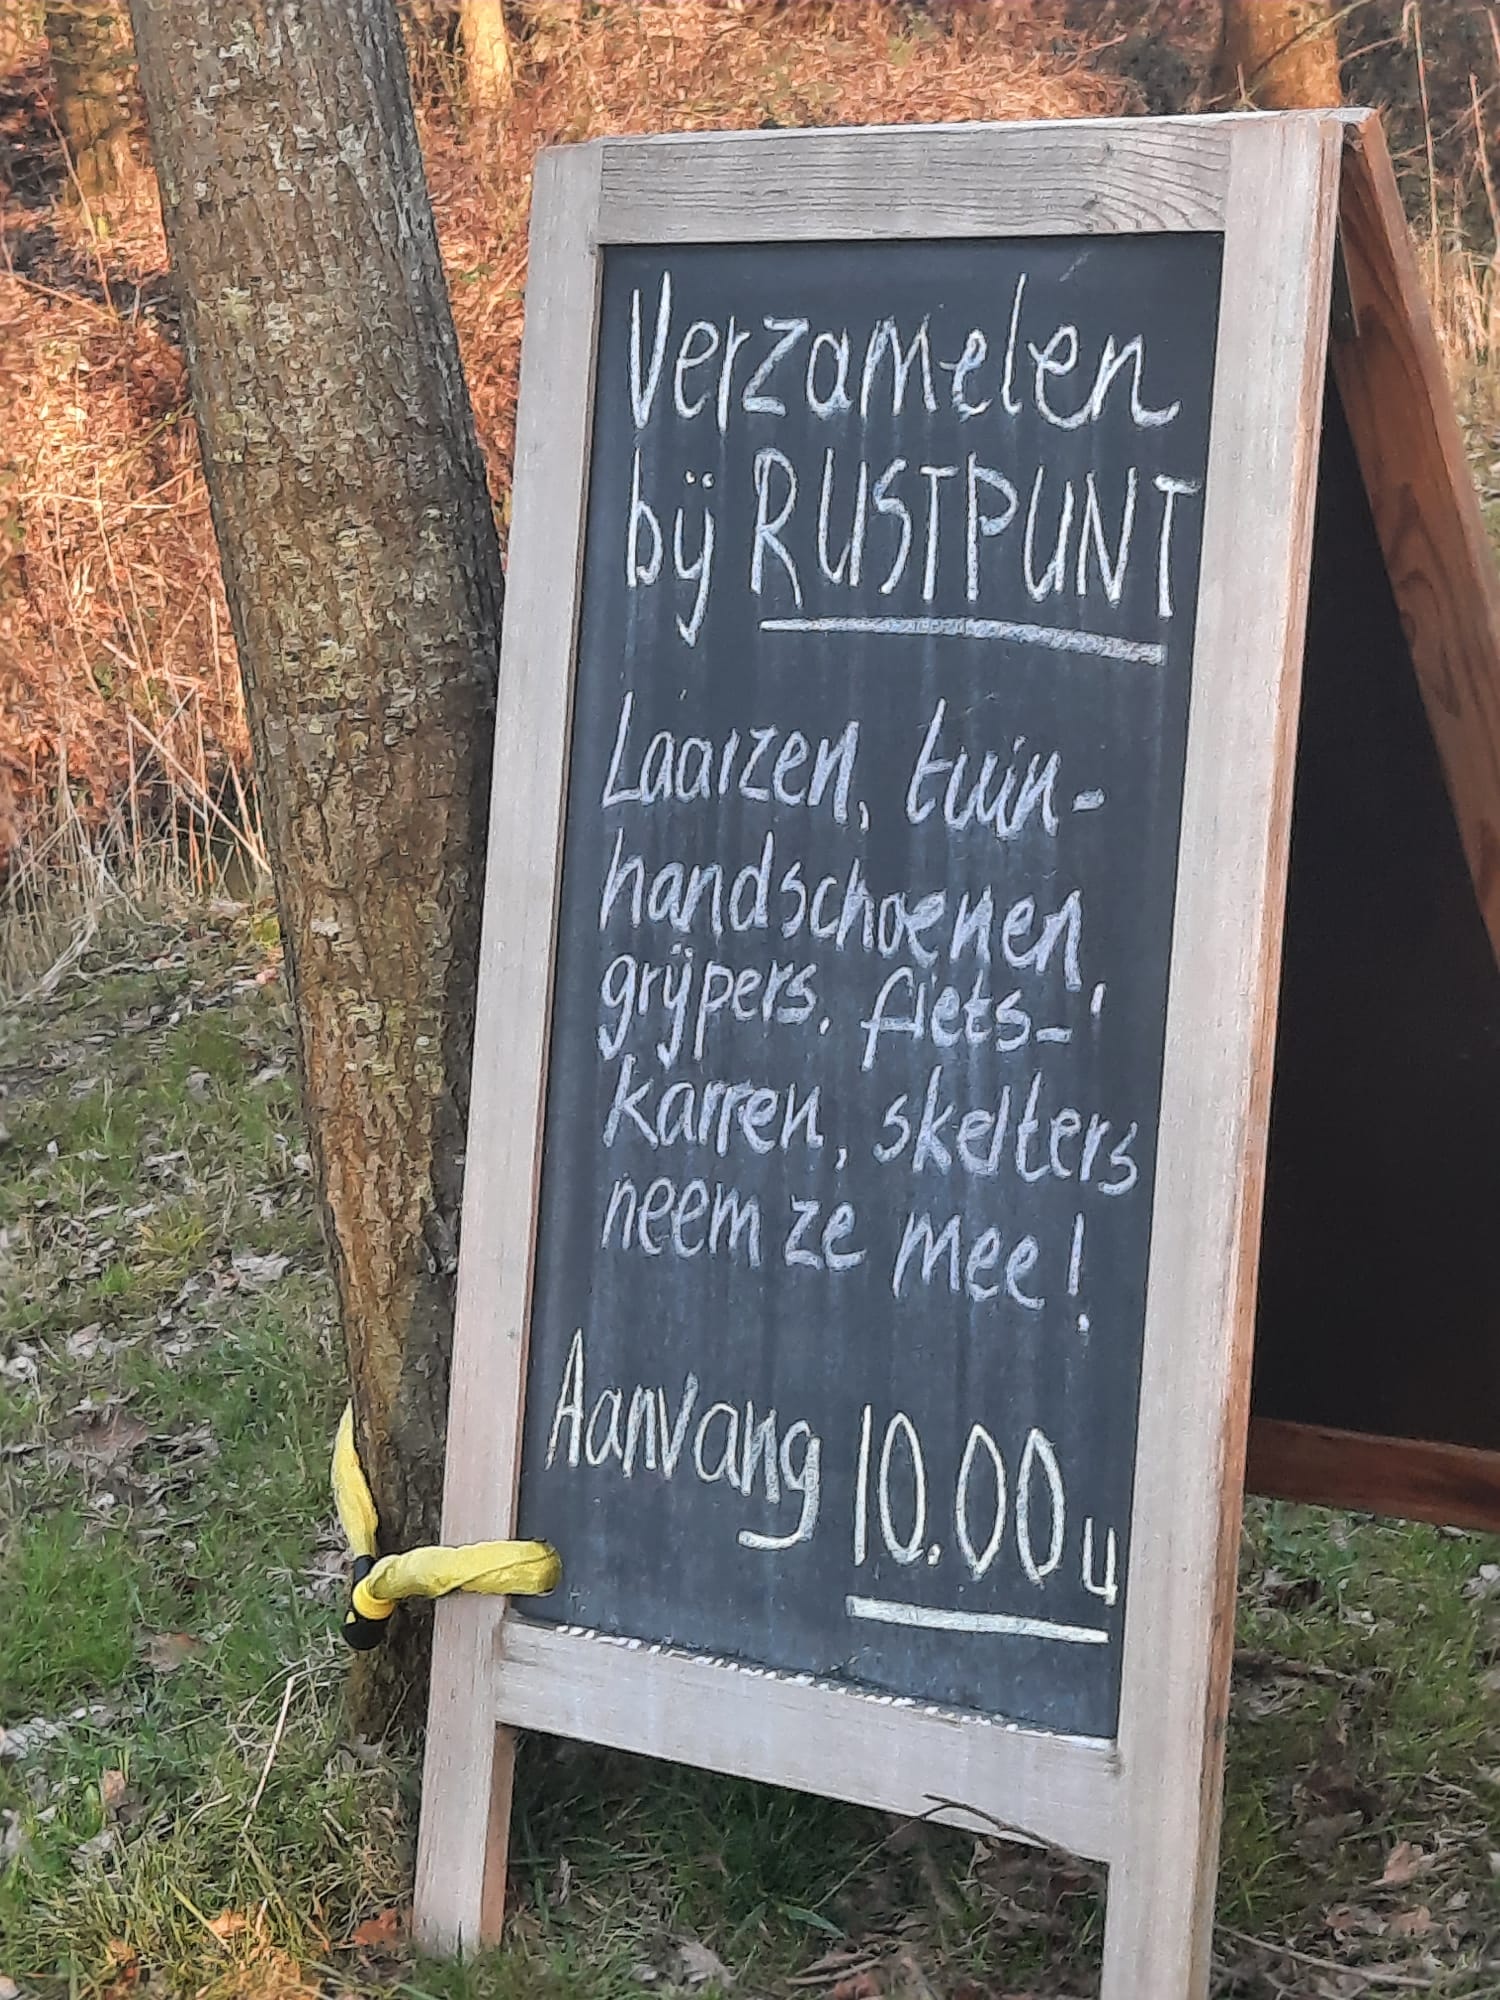 Verzamelen
bij RUSTPUNT
Laarzen, tuin-
handschoenen,
grijpers, fiets-
karren, skelters
neem ze mee!
Aanvang 10.00 u